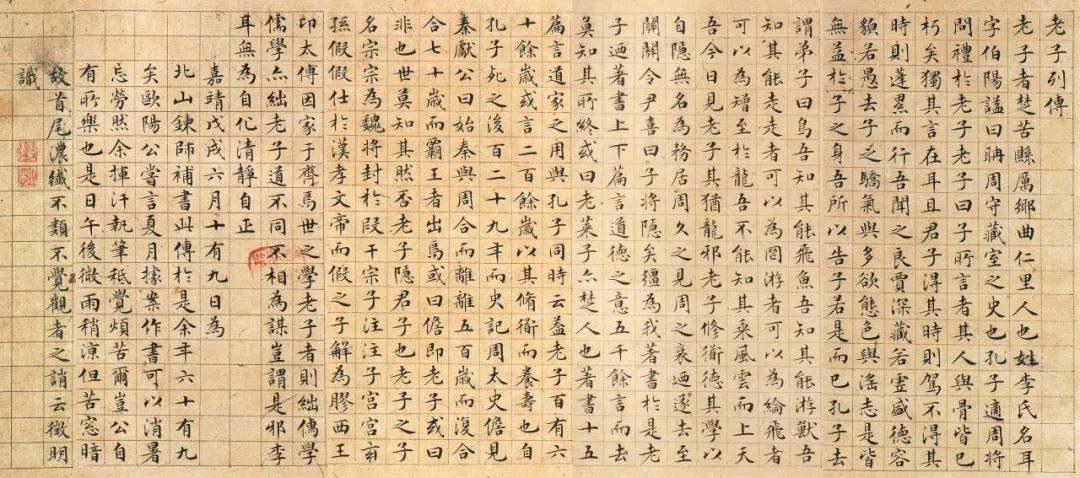 老子列傳
老子者楚苦縣厲鄉曲仁里人也姓李氏名耳
字伯陽謚曰聃周守藏室之史也孔子適周將
問禮於老子老子曰子所言者其人與骨皆已
朽矣獨其言在耳且君子得其時則駕不得其
時則蓬累而行吾聞之良賈深藏若虛盛德容
貌若愚去子之驕氣與多欲態色與淫志是皆
無益於子之身吾所以告子若是而已孔子去
謂弟子曰鳥吾知其能飛魚吾知其能游獸吾
知其能走走者可以為罔游者可以為綸飛者
可以為矰至於龍吾不能知其乘風雲而上天
吾今日見老子其猶龍邪老子修道德其學以
自隱無名為務居周久之見周之衰迺遂去至
關關令尹喜曰子將隱矣彊為我著書於是老
子迺著書上下篇言道德之意五千餘言而去
莫知其所終或曰老萊子亦楚人也著書十五
篇言道家之用與孔子同時云蓋老子百有六
十餘歲或言二百餘歲以其脩道而養壽也自
孔子死之後百二十九年而史記周太史儋見
秦獻公曰始秦與周合而離離五百歲而復合
合七十歲而霸王者出焉或曰儋即老子或曰
非也世莫知其然否老子隱君子也老子之子
名宗宗為魏將封於段干宗子注注子宮宮玄
孫假假仕於漢孝文帝而假之子解為膠西王
卬太傅因家于齊焉世之學老子者則絀儒學
儒學亦絀老子道不同不相為謀豈謂是邪李
耳無為自化清靜自正
嘉靖戊戌六月十有九日為
北山鍊師補書此傳於是余年六十有九
矣歐陽公嘗言夏月據案作書可以消暑
忘勞然余揮汗執筆秪覺煩苦爾豈公自
有所樂也是日午後微雨稍涼但苦窓暗
故首尾濃纖不類不覺觀者之誚云徵明
識